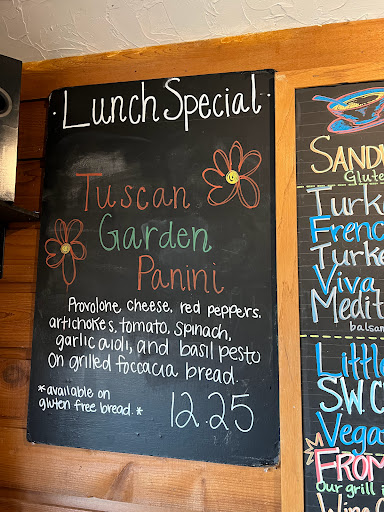 Lunch Special
Tuscan
Garden
Panini
Provolone cheese, red peppers.
artichokes, tomato, spinach,
garlic aioli, and basil pesto
on grilled foccacia bread.
*available on
gluten free bread.*
12.25
Glute
French
Turke
Viva
balsan
Little
S.W. C
FROM
Our grill i